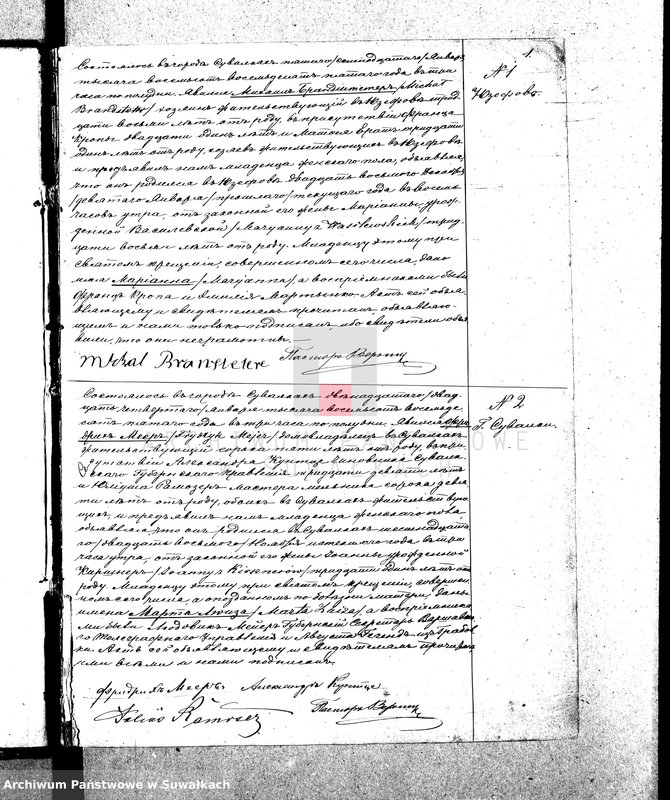 1.
№ 1
Юзефовъ.
Состоялось въ городѣ Сувалкахъ пятаго /семнадцатаго/ Января
тысяча восемьсотъ восемьдесятъ пятаго года въ три
часа по полудни. Явился Михаилъ Брандштетеръ /Michał
Brandsteter/, хозяинъ жительствующій въ Юзефовѣ трид-
цати восьми лѣтъ отъ роду, въ присутствіи Франца
Кропы двадцати одинъ лѣтъ и Матвѣя тридцати
одинъ лѣтъ отъ роду, хозяевъ жительствующихъ въ Юзефовѣ
и предъявилъ намъ младенца женскаго пола, объявляя,
что онъ родился въ Юзефовѣ двадцать восьмого Декабря
/девятаго Января/ прошлаго /текущаго года въ восемь
часовъ утра, отъ законной его жены Маріанны, урож-
денной Василевской /Maryanny z Wasilewskich/ трид-
цати восьми лѣтъ отъ роду. Младенцу этому при
святомъ крещеніи, совершенномъ сего числа, дано
имя Маріанна /Maryanna/, а воспріемниками были
Францъ Кропа и Эмилія Мартынко. Актъ сей объя-
вляющему и свидѣтелямъ прочитанъ, объявляю-
щимъ и нами только подписанъ ибо свидѣтели объя-
вили, что они неграмотны. —
Michał Bransteter Пасторъ
№ 2
Г. Сувалки.
Состоялось въ городѣ Сувалкахъ двѣнадцатаго /двад-
цать четвертаго/ Января тысяча восемьсотъ восемьде-
сятъ пятаго года въ три часа по полудни. Явился Фри-
дрихъ Мееръ /Fryderyk Mejer/ домовладѣлецъ въ Сувалкахъ
жительствующій сорока пяти лѣтъ отъ роду, въ при-
сутствіи Александра Кунтце чиновника Сувалк-
скаго Губернскаго Правленія тридцати девяти лѣтъ
и Юліуша Рамозеръ мастера сорока девя-
ти лѣтъ отъ роду, обоихъ въ Сувалкахъ жительствую-
щихъ, и предъявилъ намъ младенца женскаго пола
объявляя, что онъ родился въ Сувалкахъ шестнадцата-
го /двадцать восьмого/ Ноября истекшаго года въ три
часа утра, отъ законной его жены Іоанны урожденной
Киршнеръ /Joanny z Kirsznerów/ тридцати одинъ лѣтъ отъ
роду. Младенцу этому при святомъ крещеніи, совершен-
номъ сего числа, даны
имена Марта Луиза /Marta Luiza/, а воспріемника-
ми были Людовикъ Мейеръ Губернскій Секретарь Варшавска-
го Телеграфнаго Управленія и Августа
Актъ сей объявляющему и свидѣтелямъ прочитанъ
ими всѣми и нами подписанъ.
Фридрихъ Мееръ. Александръ Кунтце
Julius Ramoser Пасторъ
Archiwum Państwowe w Suwałkach